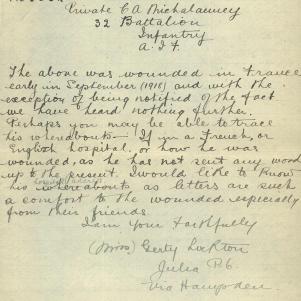 Private C A Michalanney
32 Battalion
Infantry
A.I.F.
The above was wounded in France
early in September (1918) and with the
exception of being notified of the fact
we have heard nothing further.
Perhaps you may be able to trace
his whereabouts - If in a French, or
English hospital, or how he was
wounded, as he has not sent any word
up to the present. I would like to know
his whereabouts as letters are such
a comfort to the wounded especially
from their friends.
I am Yours Faithfully
(Mrs) Gerty Lockton
Julia P.O.
Via Hampden.